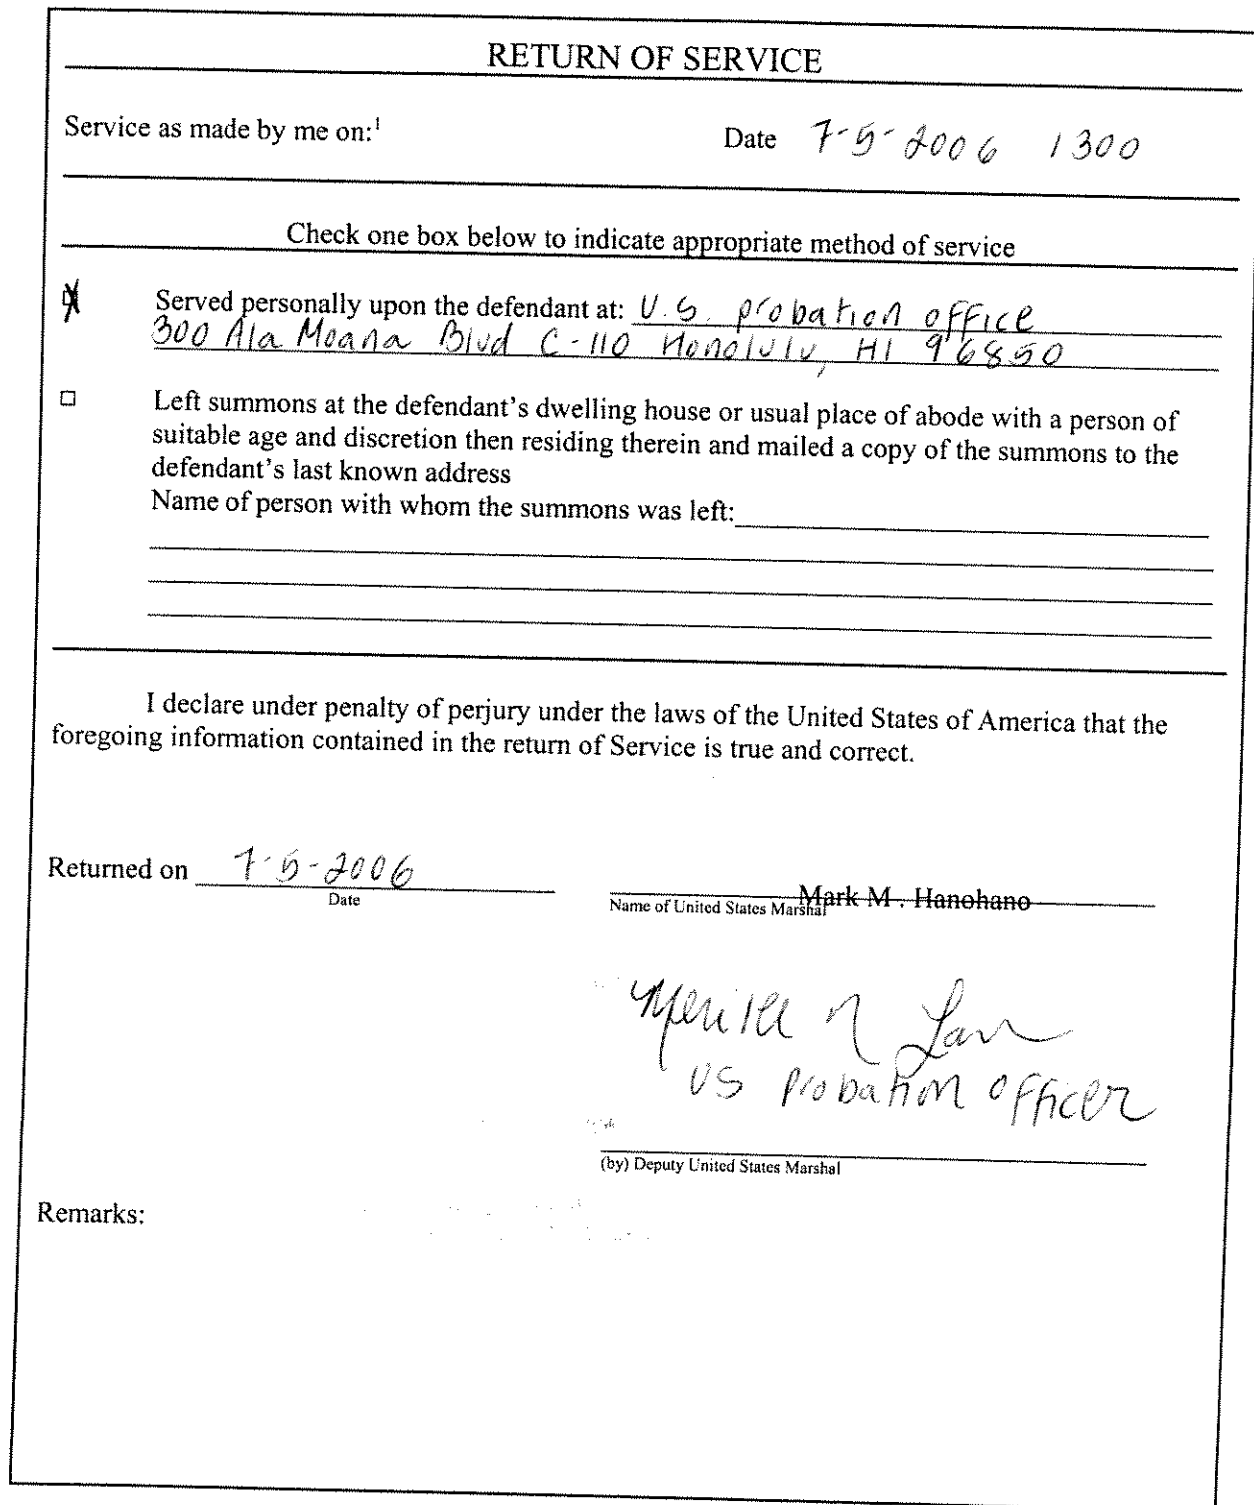 RETURN OF SERVICE
Service as made by me on:¹ Date 7-5-2006 1300
Check one box below to indicate appropriate method of service
Served personally upon the defendant at: U.S. probation office
300 Ala Moana Blvd C-110 Honolulu, HI 96850
Left summons at the defendant's dwelling house or usual place of abode with a person of
suitable age and discretion then residing therein and mailed a copy of the summons to the
defendant's last known address
Name of person with whom the summons was left:
I declare under penalty of perjury under the laws of the United States of America that the
foregoing information contained in the return of Service is true and correct.
Returned on 7-5-2006
Date
Mark M. Hanohano
Name of United States Marshal
US probation officer
(by) Deputy United States Marshal
Remarks: